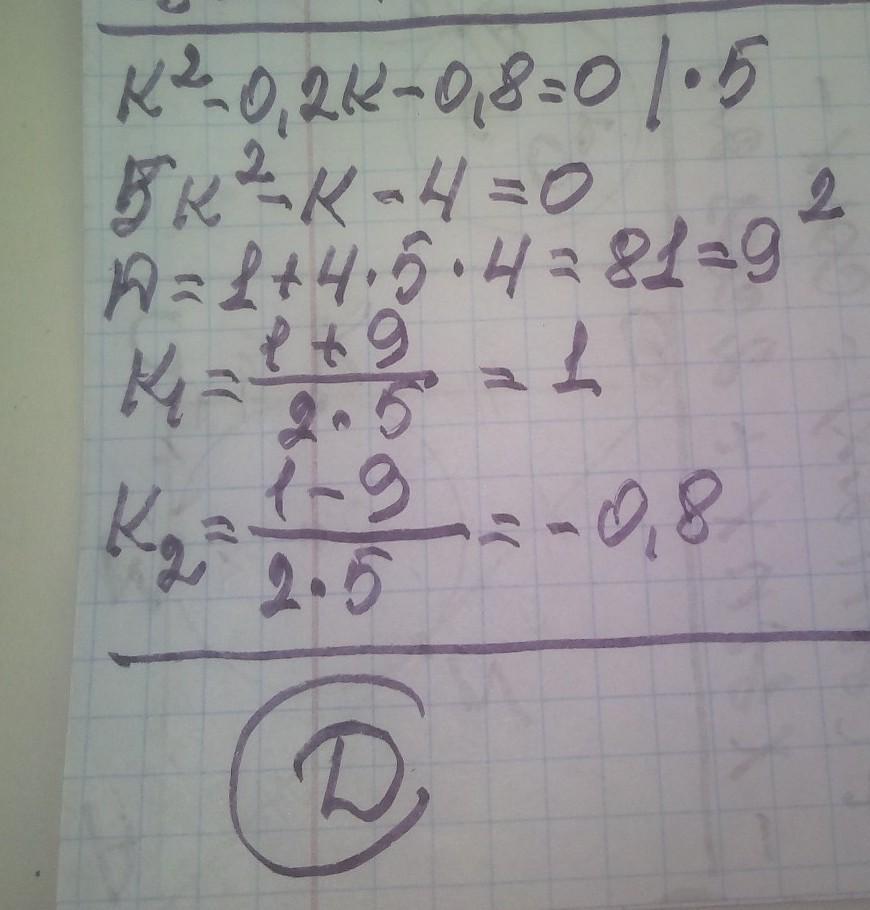 к² - 0,2к - 0,8 = 0 | · 5
5к² - к - 4 = 0
D = 1 + 4 · 5 · 4 = 81 = 9²
к₁ = (1 + 9) / (2 · 5) = 1
к₂ = (1 - 9) / (2 · 5) = - 0,8
D